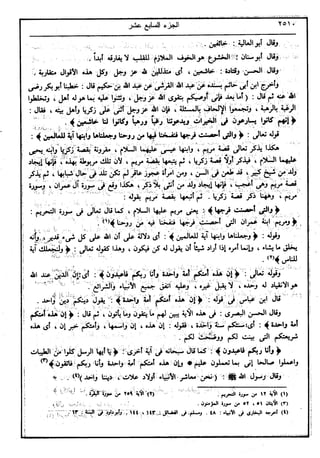 ٢٥١٠ الجزء السابع عشر
وقال أبو العالية : خائفين .
وقال أبو سنان : الخشوع هو الخوف اللازم للقلب لا يفارقه أبداً .
وقال الحسن وقتادة : خاشعين ، أى متذللين لله عز وجل وكل هذه الأقوال متقاربة .
وأخرج ابن أبى حاتم بسنده عن عبد الله القرشى عن عبد الله بن حكيم قال : خطبنا أبو بكر رضى
الله عنه ثم قال : ( أما بعد فإنى أوصيكم بتقوى الله عز وجل ، وتثنوا عليه بما هو له أهل ، وتخلطوا
الرغبة بالرهبة ، وتجمعوا الإلحاف بالمسئلة ، فإن الله عز وجل أثنى على زكريا وأهل بيته ، فقال :
﴿ إنهم كانوا يسارعون فى الخيرات ويدعوننا رغباً ورهباً وكانوا لنا خاشعين ﴾
قوله تعالى : ﴿ والتى أحصنت فرجها فنفخنا فيها من روحنا وجعلناها وابنها آية للعالمين ﴾ :
هكذا يذكر تعالى قصة مريم ، وابنها عيسى عليهما السلام ، مقرونة بقصة زكريا وابنه يحيى
عليهما السلام ، فيذكر أولاً قصة زكريا ، ثم يتبعها بقصة مريم ، لأن تلك مربوطة بهذه ، فإنها إيجاد
ولد من شيخ كبير ، قد طعن فى السن ، ومن امرأة عجوز عاقر لم تكن تلد فى حال شبابها ، ثم يذكر
قصة مريم وهى أعجب ، فإنها إيجاد ولد من أنثى بلا ذكر ، هكذا وقع فى سورة آل عمران ، وسورة
مريم ، وههنا ذكر قصة زكريا ، ثم أتبعها بقصة مريم بقوله :
﴿ والتى أحصنت فرجها ﴾ : يعنى مريم عليها السلام ، كما قال تعالى فى سورة التحريم :
﴿ ومريم ابنة عمران التى أحصنت فرجها فنفخنا فيه من روحنا ﴾ (١)
وقوله : ﴿ وجعلناها وابنها آية للعالمين ﴾ : أى دلالة على أن الله على كل شىء قدير ، وأنه
يخلق ما يشاء ، وإنما أمره إذا أراد شيئاً أن يقول له كن فيكون ، وهذا كقوله تعالى : ﴿ ولنجعلك آية
للناس ﴾ (٢)
وقوله تعالى : ﴿ إن هذه أمتكم أمة واحدة وأنا ربكم فاعبدون ﴾ : أى إن الدين عند الله
هو الانقياد له وحده ، لا يقبل غيره ، وعليه اتفق جميع الأنبياء والشرائع .
قال ابن عباس فى قوله : ﴿ إن هذه أمتكم أمة واحدة ﴾ : يقول دينكم دين واحد .
وقال الحسن البصرى : فى هذه الآية يبين لهم ما يتقون وما يأتون ، ثم قال : ﴿ إن هذه أمتكم
أمة واحدة ﴾ : أى سنتكم سنة واحدة ، فقوله : إن هذه ، إن واسمها ، وأمتكم خبر إن ، أى هذه
شريعتكم التى بينت لكم ووضحت لكم .
﴿ وأنا ربكم فاعبدون ﴾ : كما قال سبحانه فى آية أخرى : ﴿ يا أيها الرسل كلوا من الطيبات
واعملوا صالحاً إنى بما تعملون عليم * وإن هذه أمتكم أمة واحدة وأنا ربكم فاتقون ﴾ (٣)
وقال رسول الله ﷺ : ( نحن معاشر الأنبياء أولاد علات ، ديننا واحد ) (٤)
(١) الآية ١٢ من سورة التحريم . (٢) الآية ٢٥٩ من سورة البقرة .
(٣) الآيتان ٥١ ، ٥٢ من سورة المؤمنون .
(٤) أخرجه البخارى فى الأنبياء : ٤٨ . ومسلم فى الفضائل : ١٤٣ ، ١٤٤ . وأبو داود فى السنة : ١٣